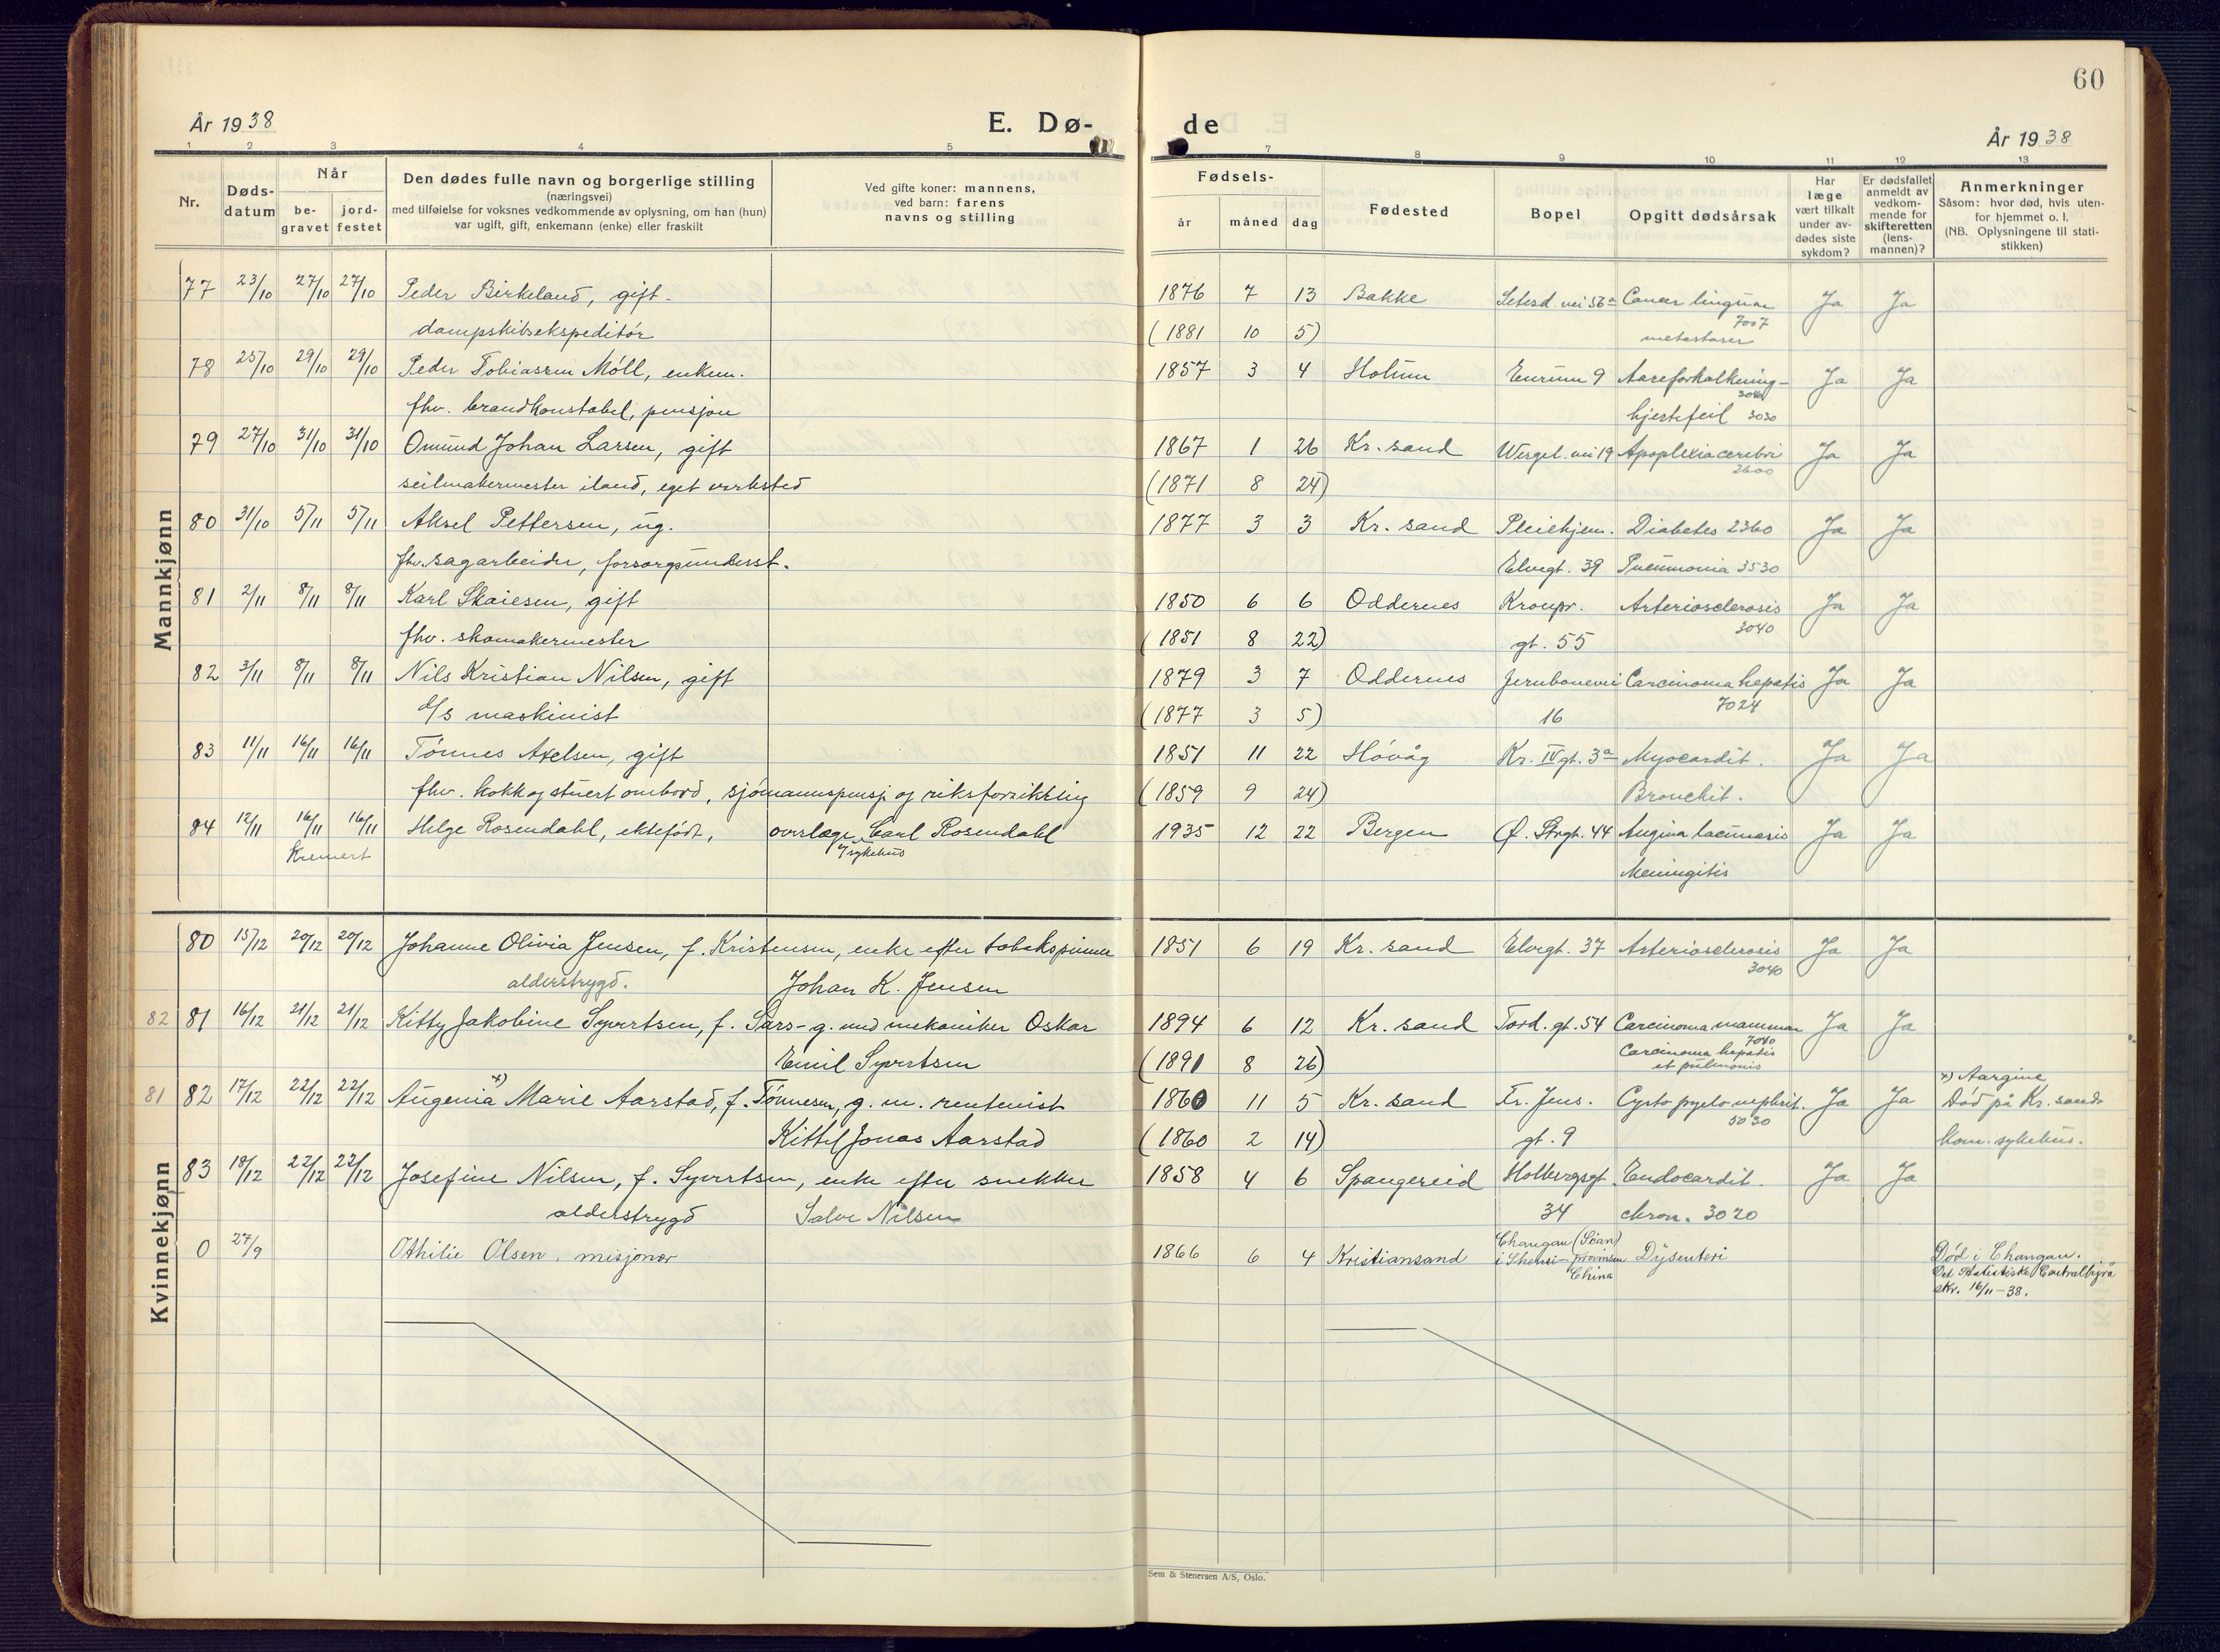 60
År 1938
E. Dø-
de
År 1938
1 2 3 4 5 7 8 9 10 11 12 13
Nr.
Døds-
datum
Når
be-
gravet
jord-
festet
Den dødes fulle navn og borgerlige stilling
(næringsvei)
med tilføielse for voksnes vedkommende av oplysning, om han (hun)
var ugift, gift, enkemann (enke) eller fraskilt
Ved gifte koner: mannens,
ved barn: farens
navns og stilling
Fødsels-
år måned dag
Fødested
Bopel
Opgitt dødsårsak
Har
læge
vært tilkalt
under av-
dødes siste
sykdom?
Er dødsfallet
anmeldt av
vedkom-
mende for
skifteretten
(lens-
mannen)?
Anmerkninger
Såsom: hvor død, hvis uten-
for hjemmet o. l.
(NB. Oplysningene til stati-
stikken)
Mannkjønn
77 23/10 27/10 27/10 Peder Birkeland, gift. 1876 7 13 Bakke Setesd. vei 56a Cancer linguae Ja Ja
dampskibsekspeditør (1881 10 5) 7007
metastaser
78 25/10 29/10 29/10 Peder Tobiassen Móll, enkem. 1857 3 4 Holum Enrum 9 Aareforkalkning- Ja Ja
3040
fhv. brandkonstabel, pensjon hjertefeil 3030
79 27/10 31/10 31/10 Omund Johan Larsen, gift 1867 1 26 Kr. sand Wergel. vei 19 Apoplexia cerebri Ja Ja
2600
seilmakermester iland, eget verksted (1871 8 24)
80 31/10 5/11 5/11 Aksel Pettersen, ug. 1877 3 3 Kr. sand Pleiehjem. Diabetes 2360 Ja Ja
fhv. sagarbeider, forsorgsunderst. Elvegt. 39 Pneumonia 3530
81 2/11 8/11 8/11 Karl Skaiesen, gift 1850 6 6 Oddernes Kronpr. Arteriosclerosis Ja Ja
3040
fhv. skomakermester (1851 8 22) gt. 55
82 3/11 8/11 8/11 Nils Kristian Nilsen, gift 1879 3 7 Oddernes Jernbanevei Carcinoma hepatis Ja Ja
7024
d/s maskinist (1877 3 5) 16
83 11/11 16/11 16/11 Tónnes Axelsen, gift 1851 11 22 Hóvåg Kr. IV gt. 3a Myocardit. Ja Ja
fhv. kokk og stuert ombord, sjómannspensj. og riksforsikting (1859 9 24) Bronchit.
84 12/11 16/11 16/11 Helge Rosendahl, ektefødt, overlæge Carl Rosendahl 1935 12 22 Bergen Ø. Strgt. 44 Angina lacunaris Ja Ja
Kremert v/ sykehus
Meningitis
Kvinnekjønn
80 15/12 20/12 20/12 Johanne Olivia Jensen, f. Kristensen, enke efter tobakspinner 1851 6 19 Kr. sand Elvegt. 37 Arteriosclerosis Ja Ja
3040
alderstrygd. Johan K. Jensen
82 81 16/12 21/12 21/12 Kitty Jakobine Syvertsen, f. Sars- g. med mekaniker Oskar 1894 6 12 Kr. sand Tord. gt. 54 Carcinoma mammae Ja Ja
7040
Emil Syvertsen (1891 8 26) Carcinoma hepatis
et pulmonis
81 82 17/12 22/12 22/12 Augenia x) Marie Aarstad, f. Tónnesen, g. m. rentenist 1860 11 5 Kr. sand Fr. Jens. Cysto pyelo nephrit. Ja Ja x) Aargine
Død på Kr. sands
5030
Kittel Jonas Aarstad (1860 2 14) gt. 9 kom. sykehus.
83 18/12 22/12 22/12 Josefine Nilsen, f. Syvertsen, enke efter snekker 1858 4 6 Spangereid Holbergsgt. Endocardit. Ja Ja
alderstrygd Salve Nilsen 34 chron. 3020
0 27/9 Othilie Olsen, misjonær 1866 6 4 Kristiansand Changan (Sian) Dysenteri Død i Changan.
i Shensi-provinsen Det Statistiske Centralbyrå
China skr. 16/11-38.
Sem & Stenersen A/S, Oslo.